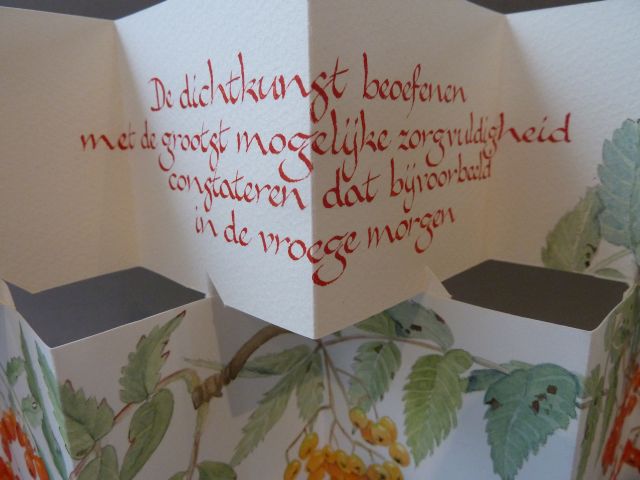 De dichtkunst beoefenen
met de grootst mogelijke zorgvuldigheid
constateren dat bijvoorbeeld
in de vroege morgen